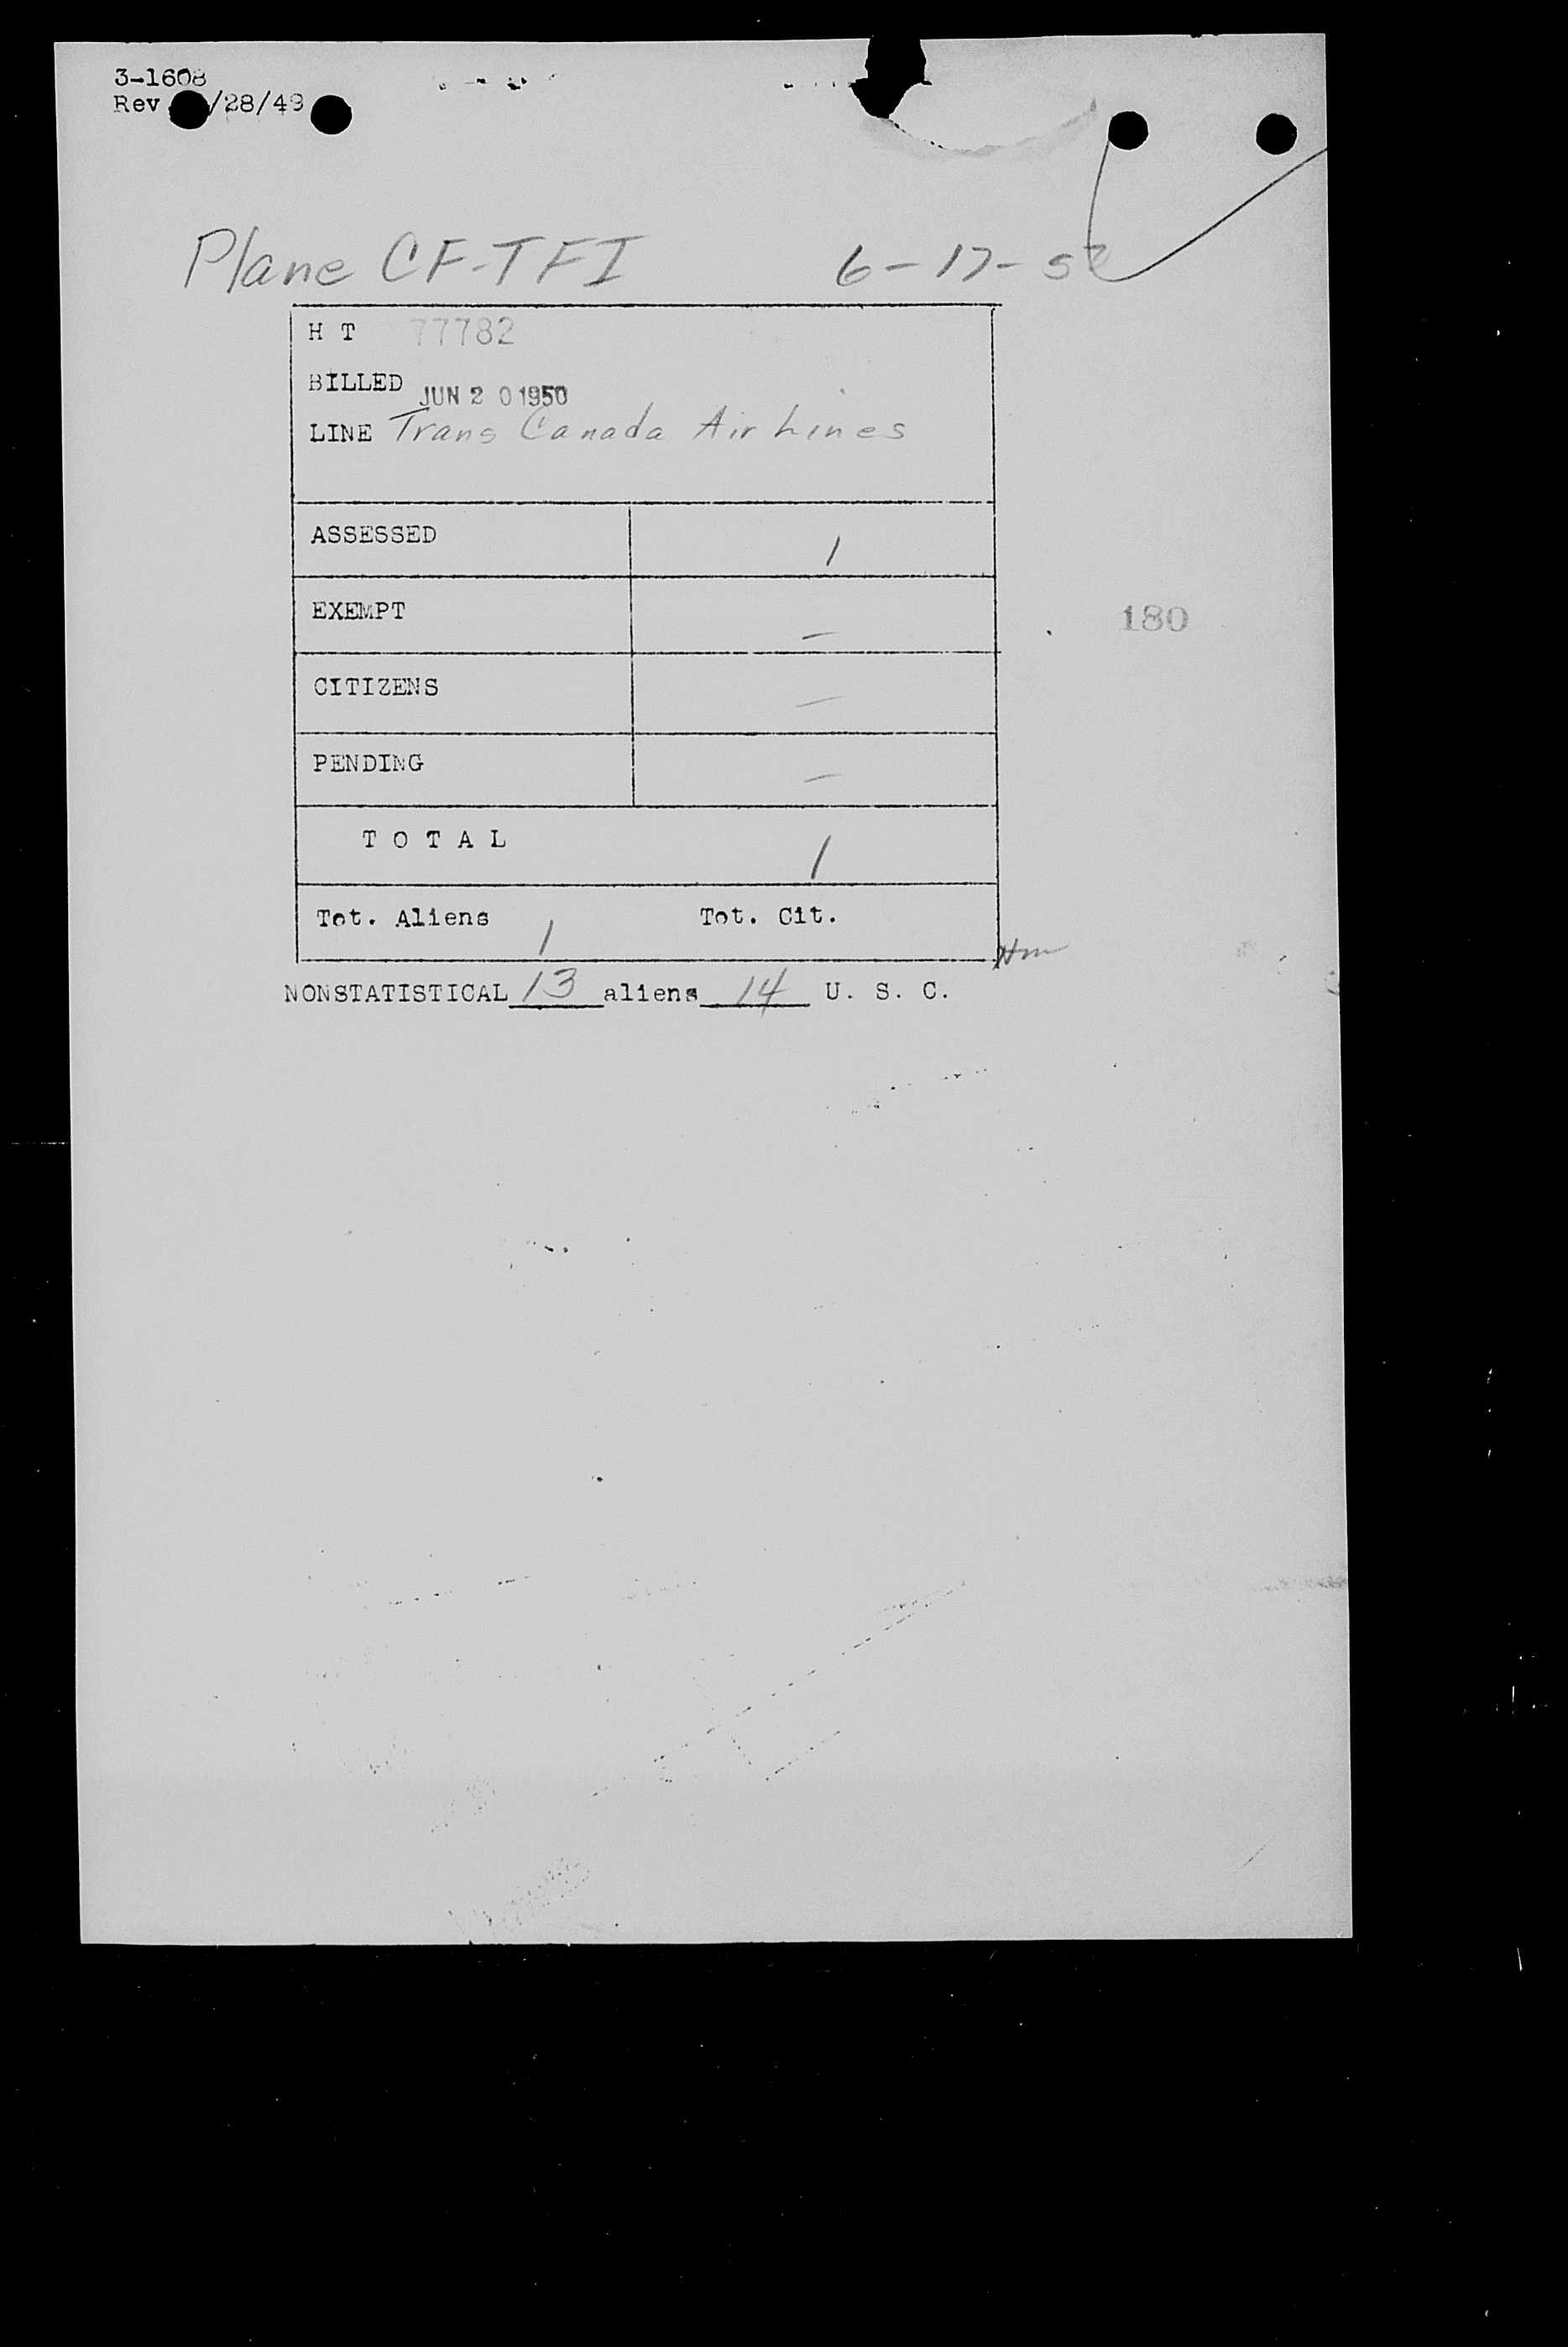 3-1608
Rev /28/49
Plane CF-TFI 6-17-5
H T 77782
BILLED JUN 20 1950
LINE Trans Canada Air Lines
ASSESSED 1
EXEMPT —
CITIZENS —
PENDING —
180
T O T A L 1
Tot. Aliens 1 Tot. Cit.
NONSTATISTICAL 13 aliens 14 U. S. C.